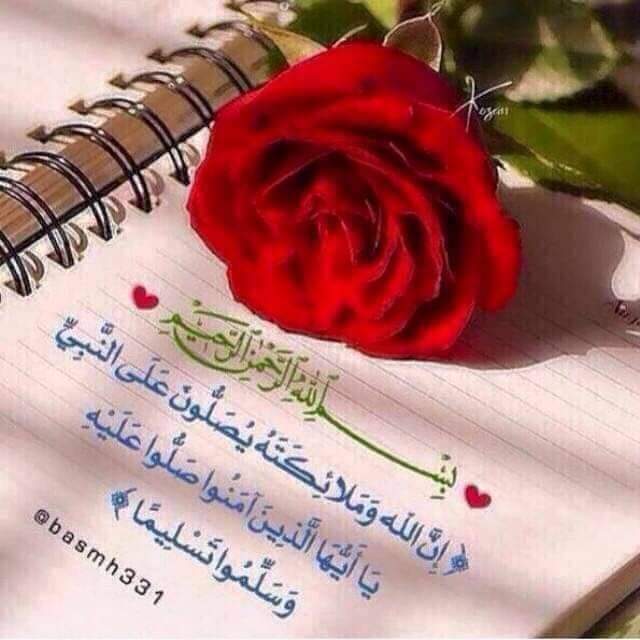 بِسْمِ اللهِ الرَّحْمٰنِ الرَّحِيْمِ
﴿ إِنَّ اللَّهَ وَمَلَائِكَتَهُ يُصَلُّونَ عَلَى النَّبِيِّ
يَا أَيُّهَا الَّذِينَ آمَنُوا صَلُّوا عَلَيْهِ
وَسَلِّمُوا تَسْلِيمًا ﴾
@basmh331